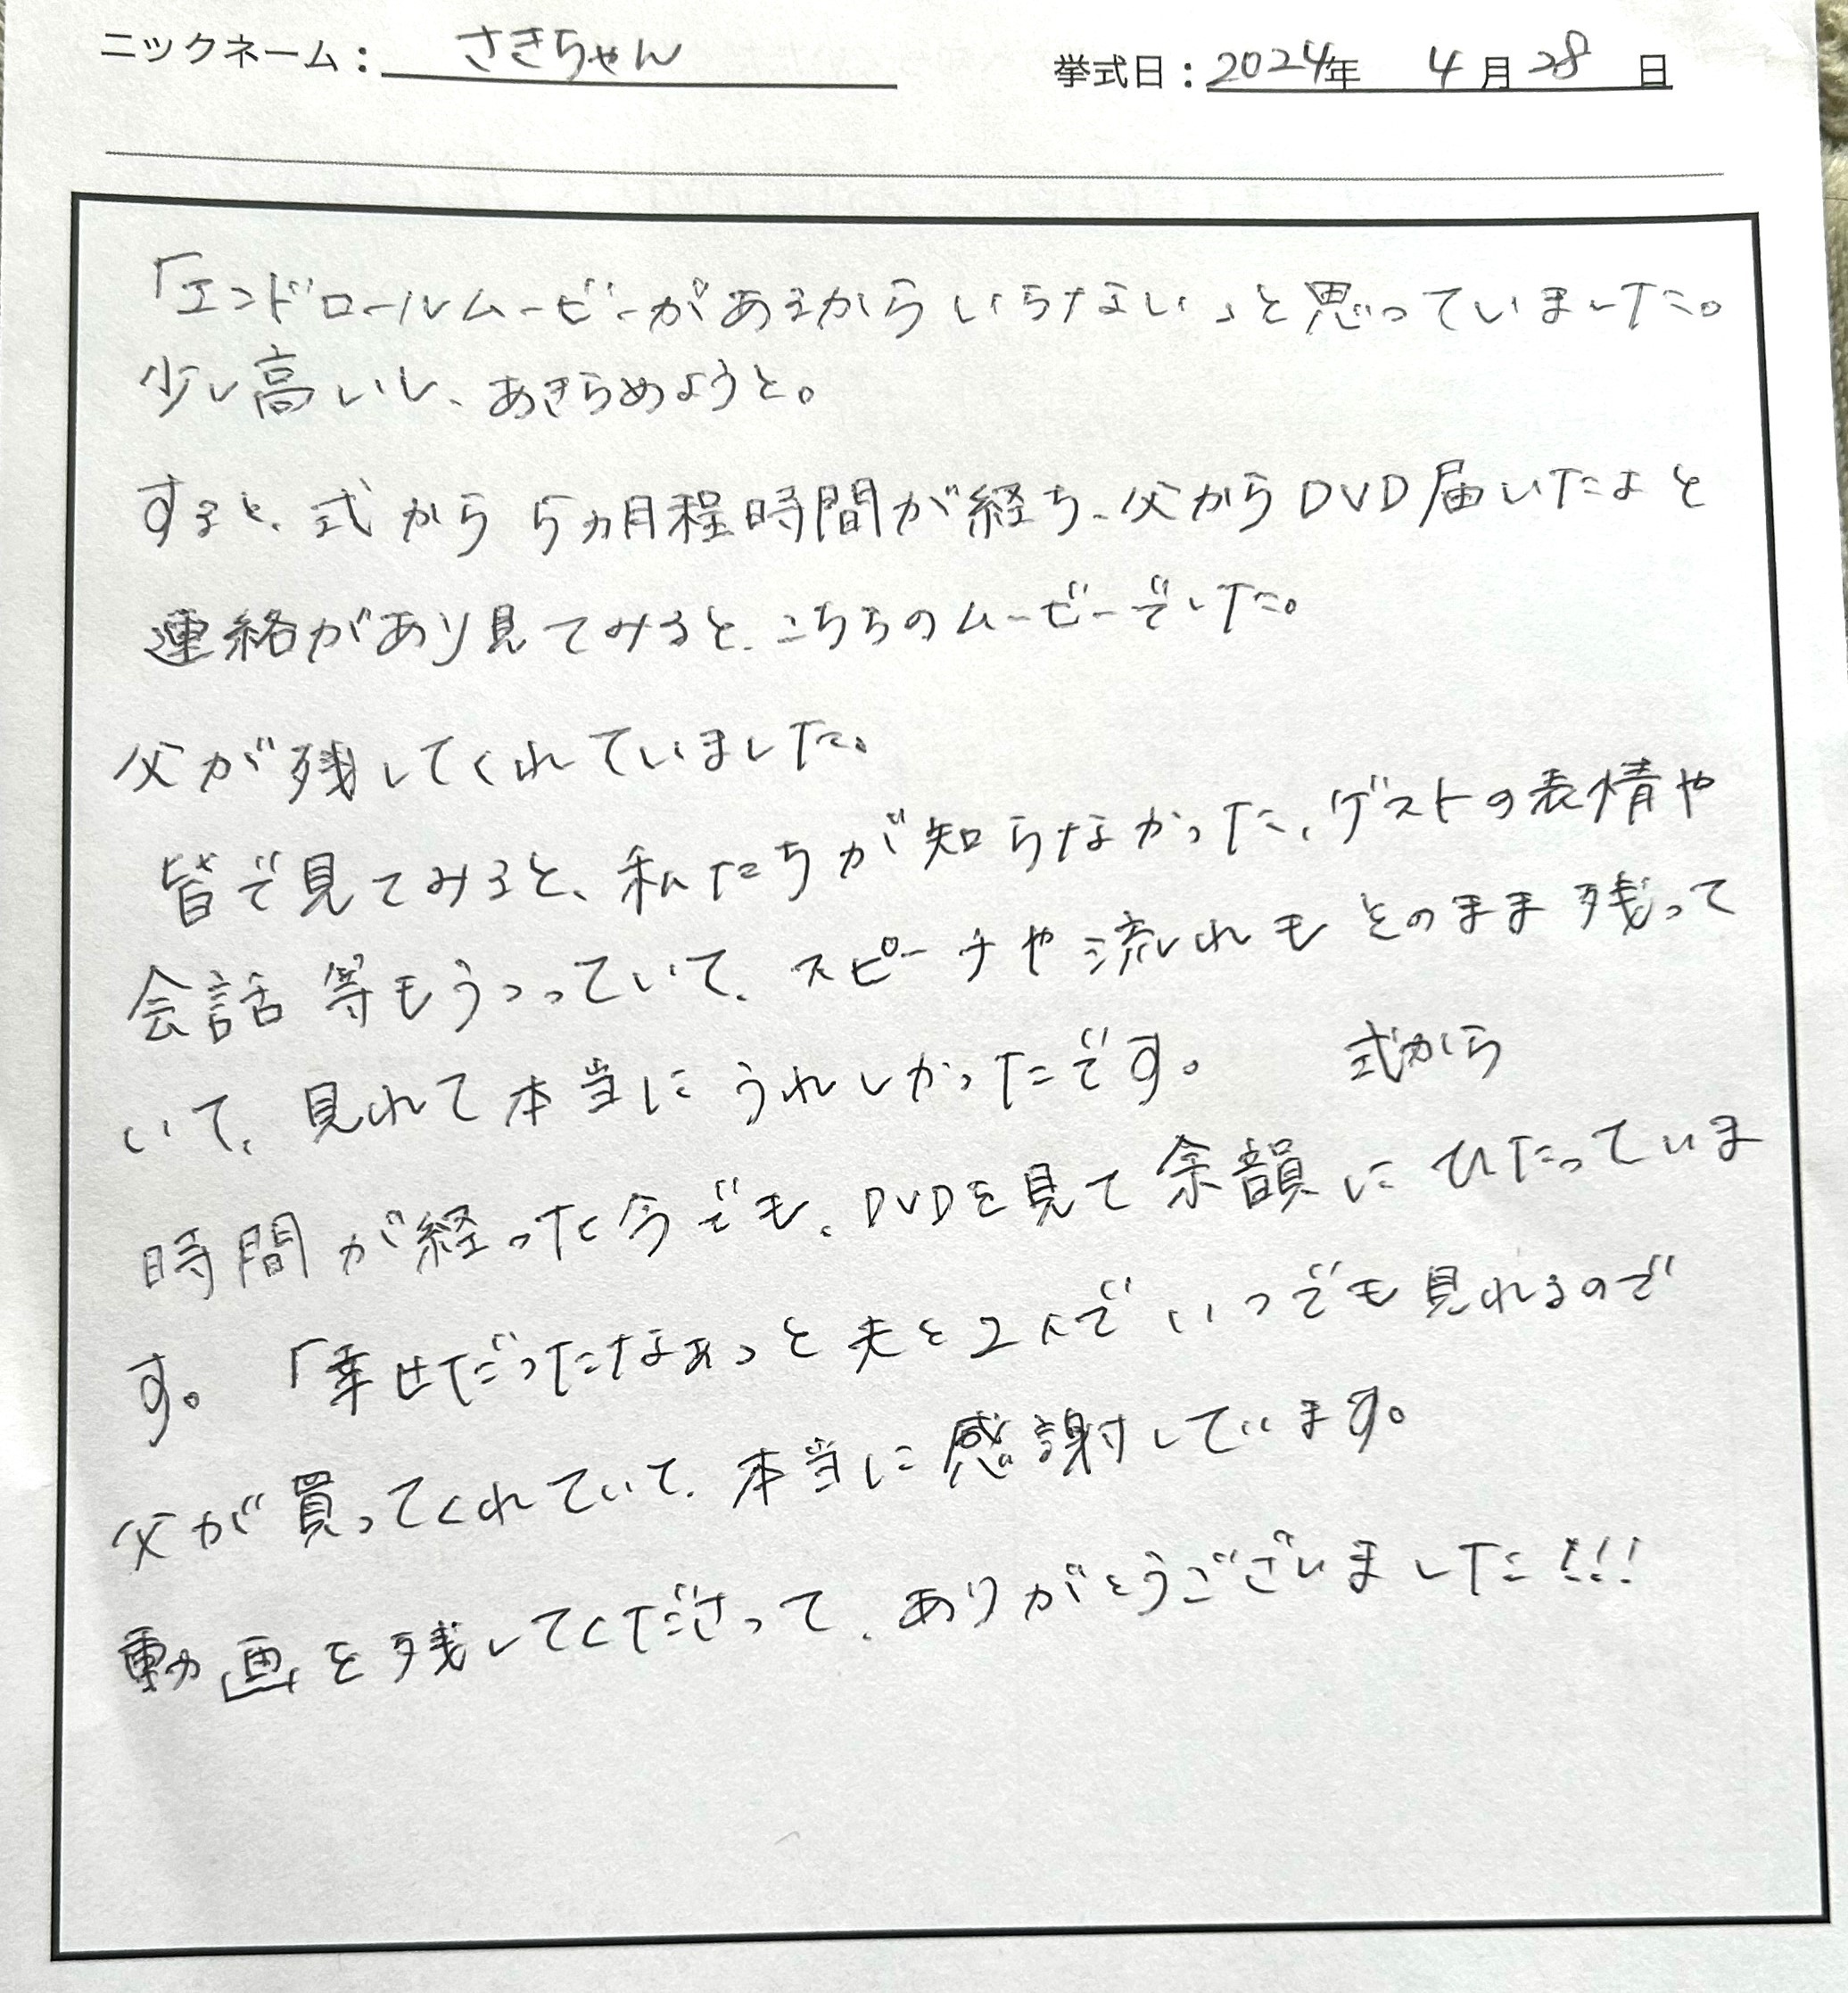 ニックネーム： さきちゃん 挙式日：2024年 4月28日
「エンドロールムービーがあるからいらない」と思っていました。
少し高いし、あきらめようと。
すると、式から5ヵ月程時間が経ち、父からDVD届いたよと
連絡があり見てみると、こちらのムービーでした。
父が残してくれていました。
皆で見てみると、私たちが知らなかった、ゲストの表情や
会話等もうつっていて、スピーチや流れもそのまま残って
いて、見れて本当にうれしかったです。 式から
時間が経った今でも、DVDを見て余韻にひたっていま
す。「幸せだったなぁ」と夫と2人でいつでも見れるので
父が買ってくれていて、本当に感謝しています。
動画を残してくださって、ありがとうございました!!!